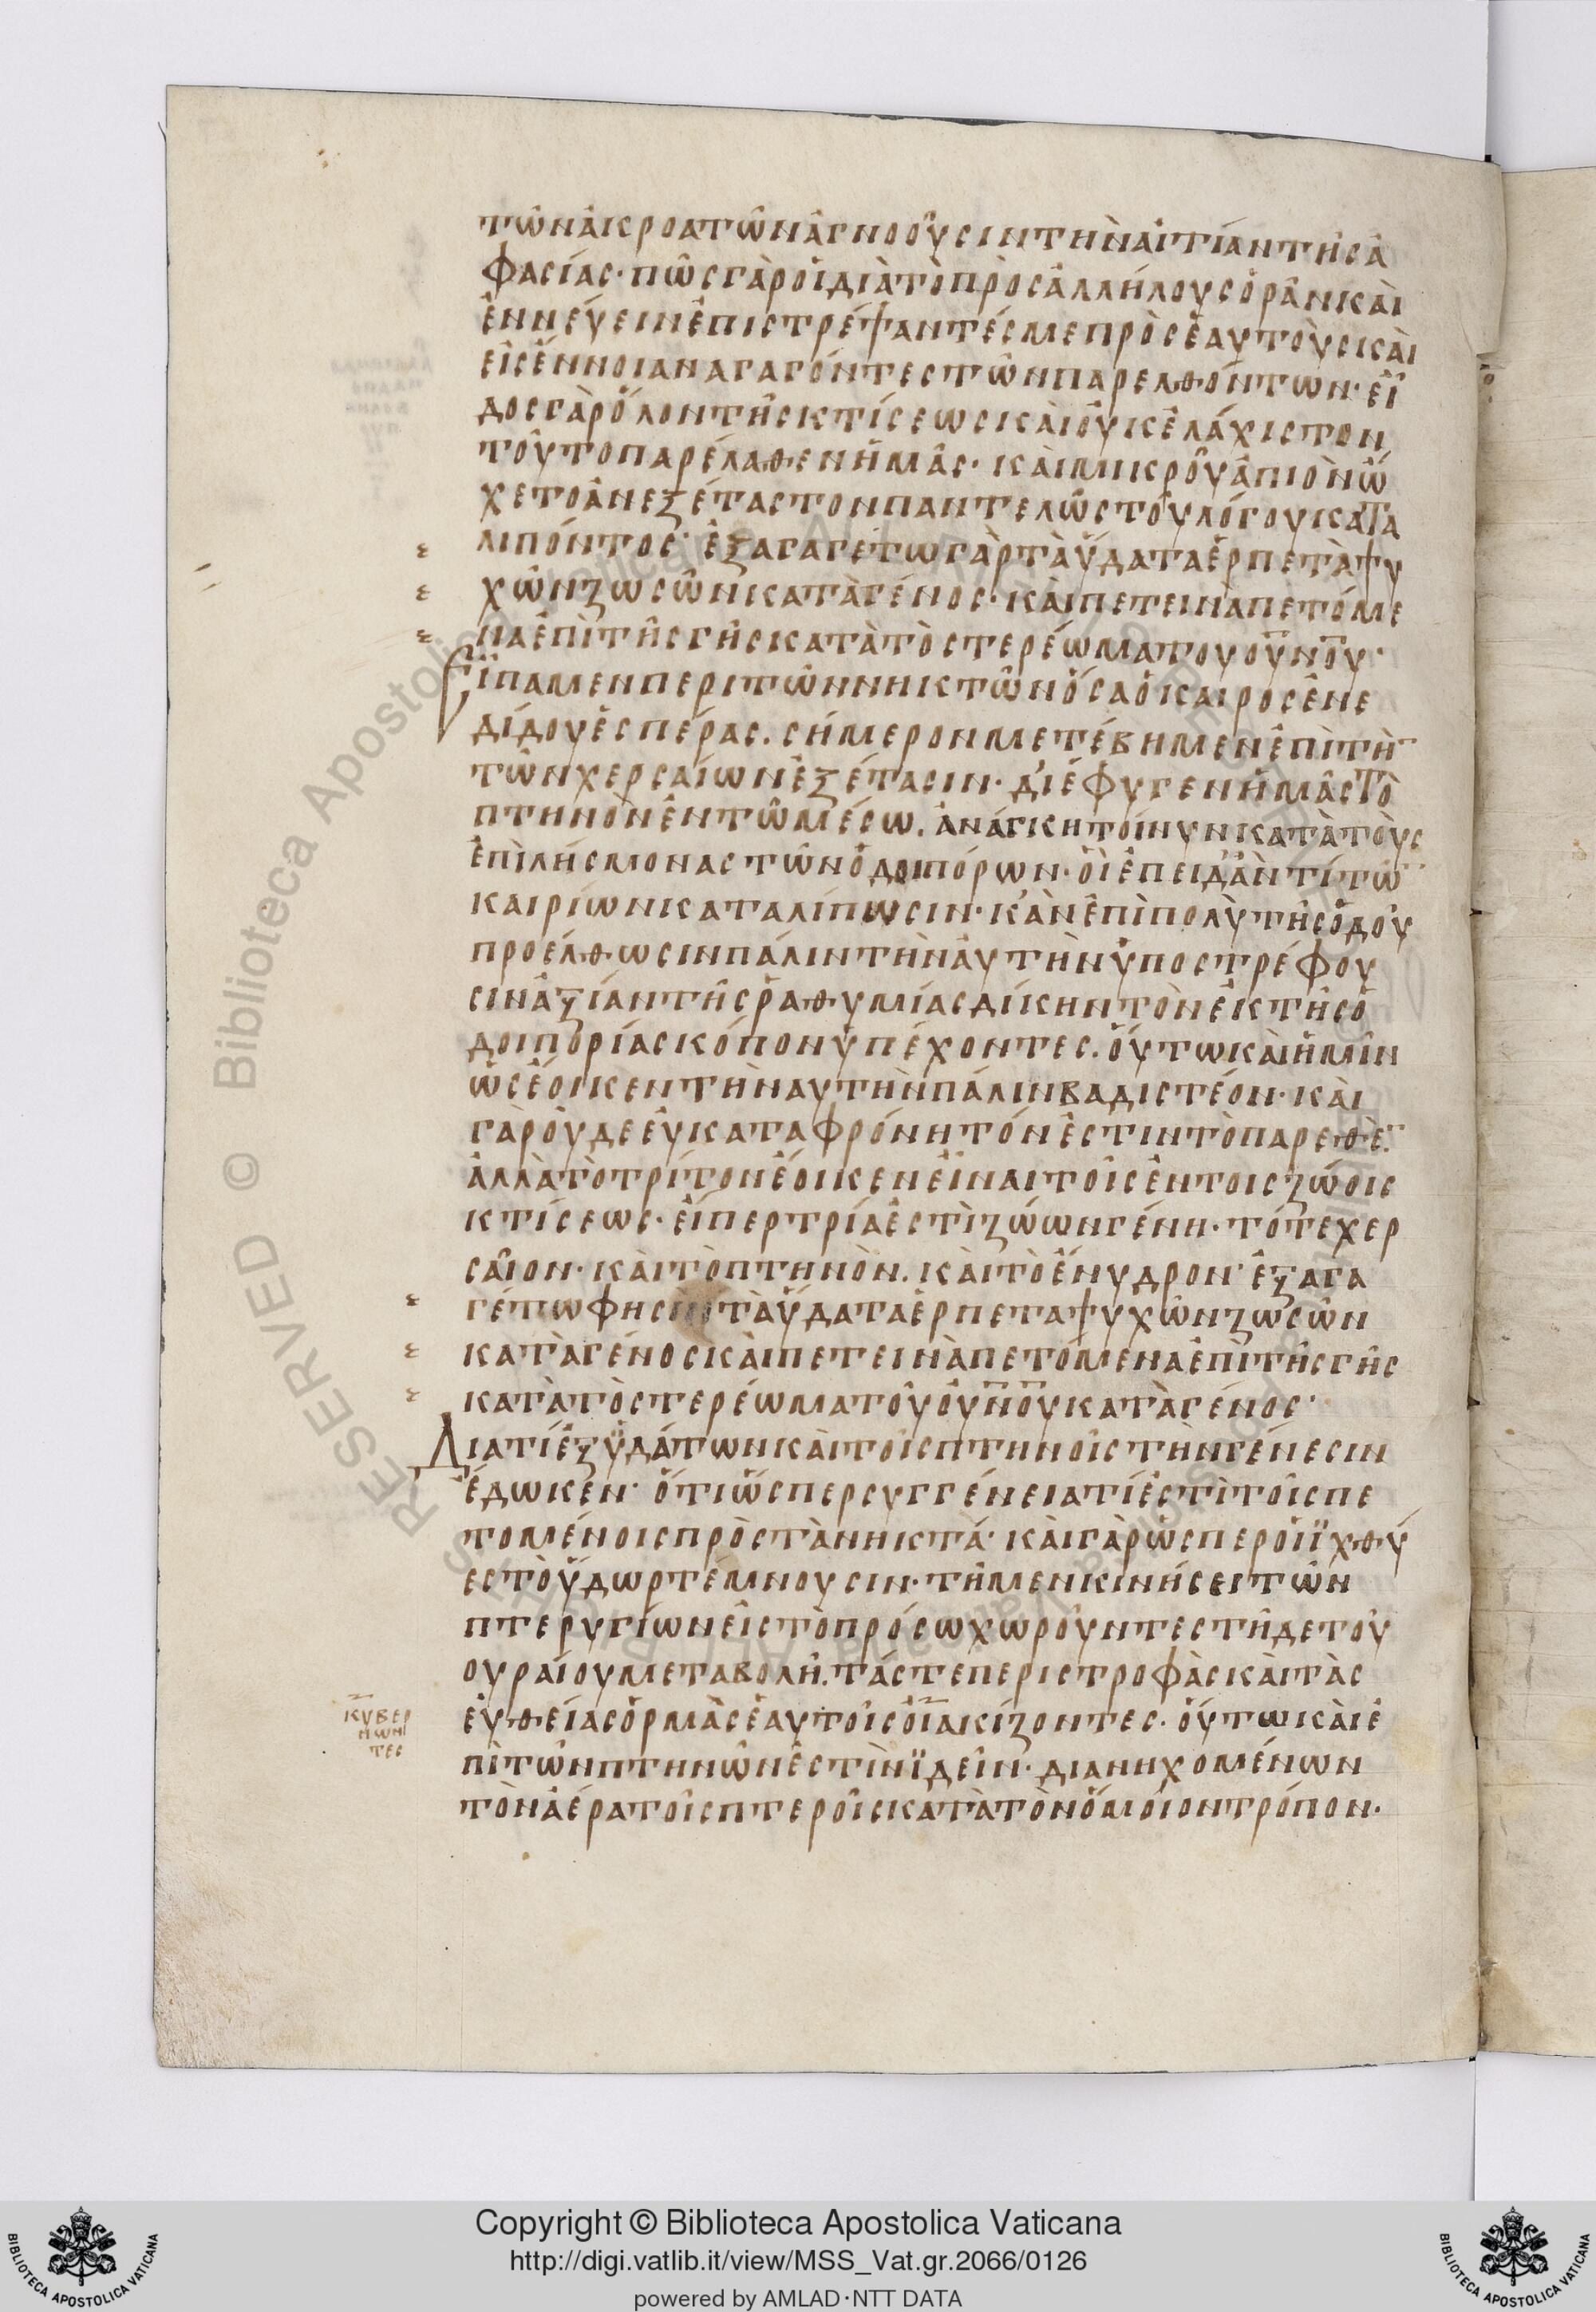 τῶν ἀκροατῶν ἀγνοοῦσιν τὴν αἰτίαν τῆς ἀ
φασίας· πῶς γὰρ οἱ διὰ τὸ πρὸς ἀλλήλους ὁρᾶν καὶ
ἐννεύειν ἐπιστρέψαντές με πρὸς ἑαυτοὺς καὶ
εἰς ἔννοιαν ἀγαγόντες τῶν παρελθόντων· εἶ
δος γὰρ ὅλον τῆς κτίσεως καὶ οὐκ ἐλάχιστον
τοῦτο παρέλαθεν ἡμᾶς· καὶ μικροῦ ἀπιὸν ᾤ
χετο ἀνεξέταστον παντελῶς τοῦ λόγου κατα
λιπόντος· ἐξαγαγέτω γὰρ τὰ ὕδατα ἑρπετὰ ψυ
χῶν ζωσῶν κατὰ γένος· καὶ πετεινὰ πετόμε
να ἐπὶ τῆς γῆς κατὰ τὸ στερέωμα τοῦ οὐνου·
Εἴπαμεν περὶ τῶν νηκτῶν ὅσα ὁ καιρὸς ἐνε
δίδου ἑσπέρας. σήμερον μετέβημεν ἐπὶ τὴ
τῶν χερσαίων ἐξέτασιν· διέφυγεν ἡμᾶς τὸ
πτηνὸν ἐν τῷ μέσω. ἀνάγκη τοίνυν κατὰ τοὺς
ἐπιλήσμονας τῶν ὁδοιπόρων· οἳ ἐπειδ' ἄν τι τῶ
καιρίων καταλίπωσιν· κἂν ἐπὶ πολὺ τῆς ὁδοῦ
προέλθωσιν πάλιν τὴν αὐτὴν ὑποστρέφου
σιν ἀξίαν τῆς ῥαθυμίας δίκην τὸν ἐκ τῆς ὁ
δοιπορίας κόπον ὑπέχοντες. οὕτω καὶ ἡμῖν
ὡς ἔοικεν τὴν αὐτὴν πάλιν βαδιστέον· καὶ
γὰρ οὐδε εὐκαταφρόνητόν ἐστιν τὸ παρεθὲ
ἀλλὰ τὸ τρίτον ἔοικεν εἶναι τοῖς ἐν τοις ζώοις
κτίσεως· εἴπερ τρία ἐστὶ ζώων γένη· τό τε χερ
σαῖον· καὶ τὸ πτηνὸν. καὶ τὸ ἔνυδρον· ἐξαγα
γέτω φησιν τὰ ὕδατα ἑρπετα ψυχῶν ζωσῶν
κατὰ γένος καὶ πετεινὰ πετόμενα ἐπὶ τῆς γῆς
κατὰ τὸ στερέωμα τοῦ οὐνου κατὰ γένος·
Διατί ἐξ ὑδάτων καὶ τοῖς πτηνοῖς τὴν γένεσιν
ἔδωκεν· ὅτι ὥσπερ συγγένειά τί ἐστὶ τοῖς πε
τομένοις πρὸς τὰ νηκτά· καὶ γὰρ ὥσπερ οἱ ἰχθύ
ες τὸ ὕδωρ τέμνουσιν· τῆ μεν κινήσει τῶν
πτερυγίων εἰς τὸ πρόσω χωροῦντες τῆ δε τοῦ
ουραίου μεταβολῆ. τάς τε περιστροφὰς καὶ τὰς
εὐθείας ὁρμὰς ἑαυτοῖς οἰακίζοντες. οὕτω καὶ ἐ
πὶ τῶν πτηνῶν ἐστὶν ἰδεῖν· διανηχομένων
τὸν ἀέρα τοῖς πτεροῖς κατὰ τὸν ὅμοιον τρόπον.
κυβερ
νῶν
τες
Copyright © Biblioteca Apostolica Vaticana
http://digi.vatlib.it/view/MSS_Vat.gr.2066/0126
powered by AMLAD·NTT DATA